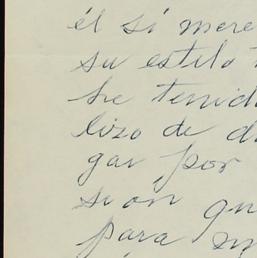 él sí mere
su estilo
he tenid
lizo de d
gar por
sion qu
para m